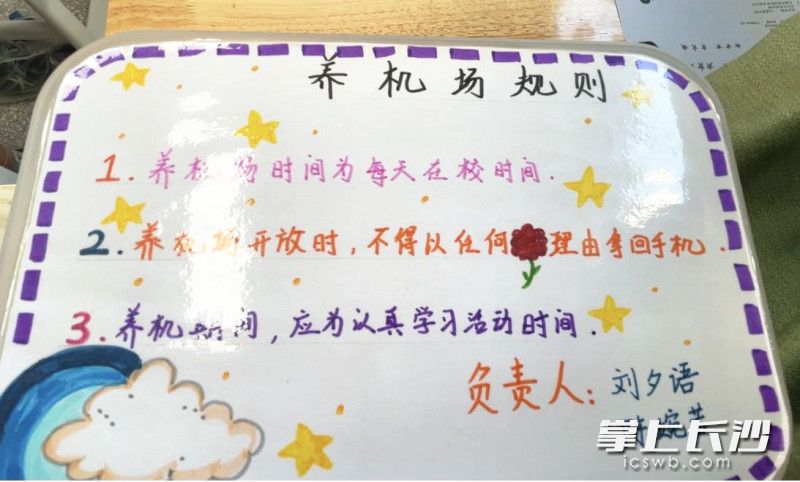 养机场规则
1. 养机场时间为每天在校时间.
2. 养机场开放时, 不得以任何理由拿回手机.
3. 养机期间, 应为认真学习活动时间.
负责人: 刘夕语
掌上长沙
icswb.com